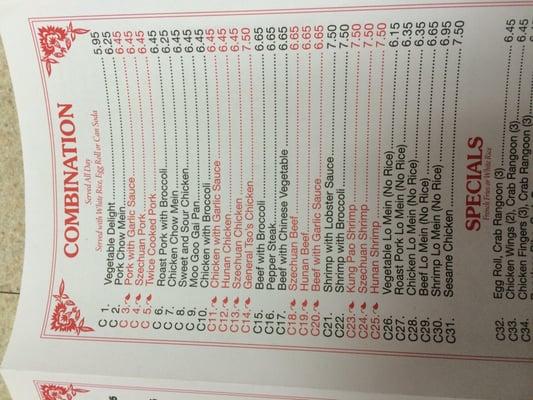 COMBINATION
Served All Day
Served with White Rice, Egg Roll or Can Soda
C 1. Vegetable Delight 5.95
C 2. Pork Chow Mein 6.25
C 3. Pork with Garlic Sauce 6.45
C 4. Szechuan Pork 6.45
C 5. Twice Cooked Pork 6.45
C 6. Roast Pork with Broccoli 6.45
C 7. Chicken Chow Mein 6.25
C 8. Sweet and Sour Chicken 6.45
C 9. Moo Goo Gai Pan 6.45
C10. Chicken with Broccoli 6.45
C11. Chicken with Garlic Sauce 6.45
C12. Hunan Chicken 6.45
C13. Szechuan Chicken 6.45
C14. General Tso's Chicken 7.50
C15. Beef with Broccoli 6.65
C16. Pepper Steak 6.65
C17. Beef with Chinese Vegetable 6.65
C18. Szechuan Beef 6.65
C19. Hunan Beef 6.65
C20. Beef with Garlic Sauce 6.65
C21. Shrimp with Lobster Sauce 7.50
C22. Shrimp with Broccoli 7.50
C23. Kung Pao Shrimp 7.50
C24. Szechuan Shrimp 7.50
C25. Hunan Shrimp 7.50
C26. Vegetable Lo Mein (No Rice) 6.15
C27. Roast Pork Lo Mein (No Rice) 6.35
C28. Chicken Lo Mein (No Rice) 6.35
C29. Beef Lo Mein (No Rice) 6.65
C30. Shrimp Lo Mein (No Rice) 6.95
C31. Sesame Chicken 7.50
SPECIALS
French Fries or White Rice
C32. Egg Roll, Crab Rangoon (3)
C33. Chicken Wings (2), Crab Rangoon (3) 6.45
C34. Chicken Fingers (3), Crab Rangoon (3) 6.45